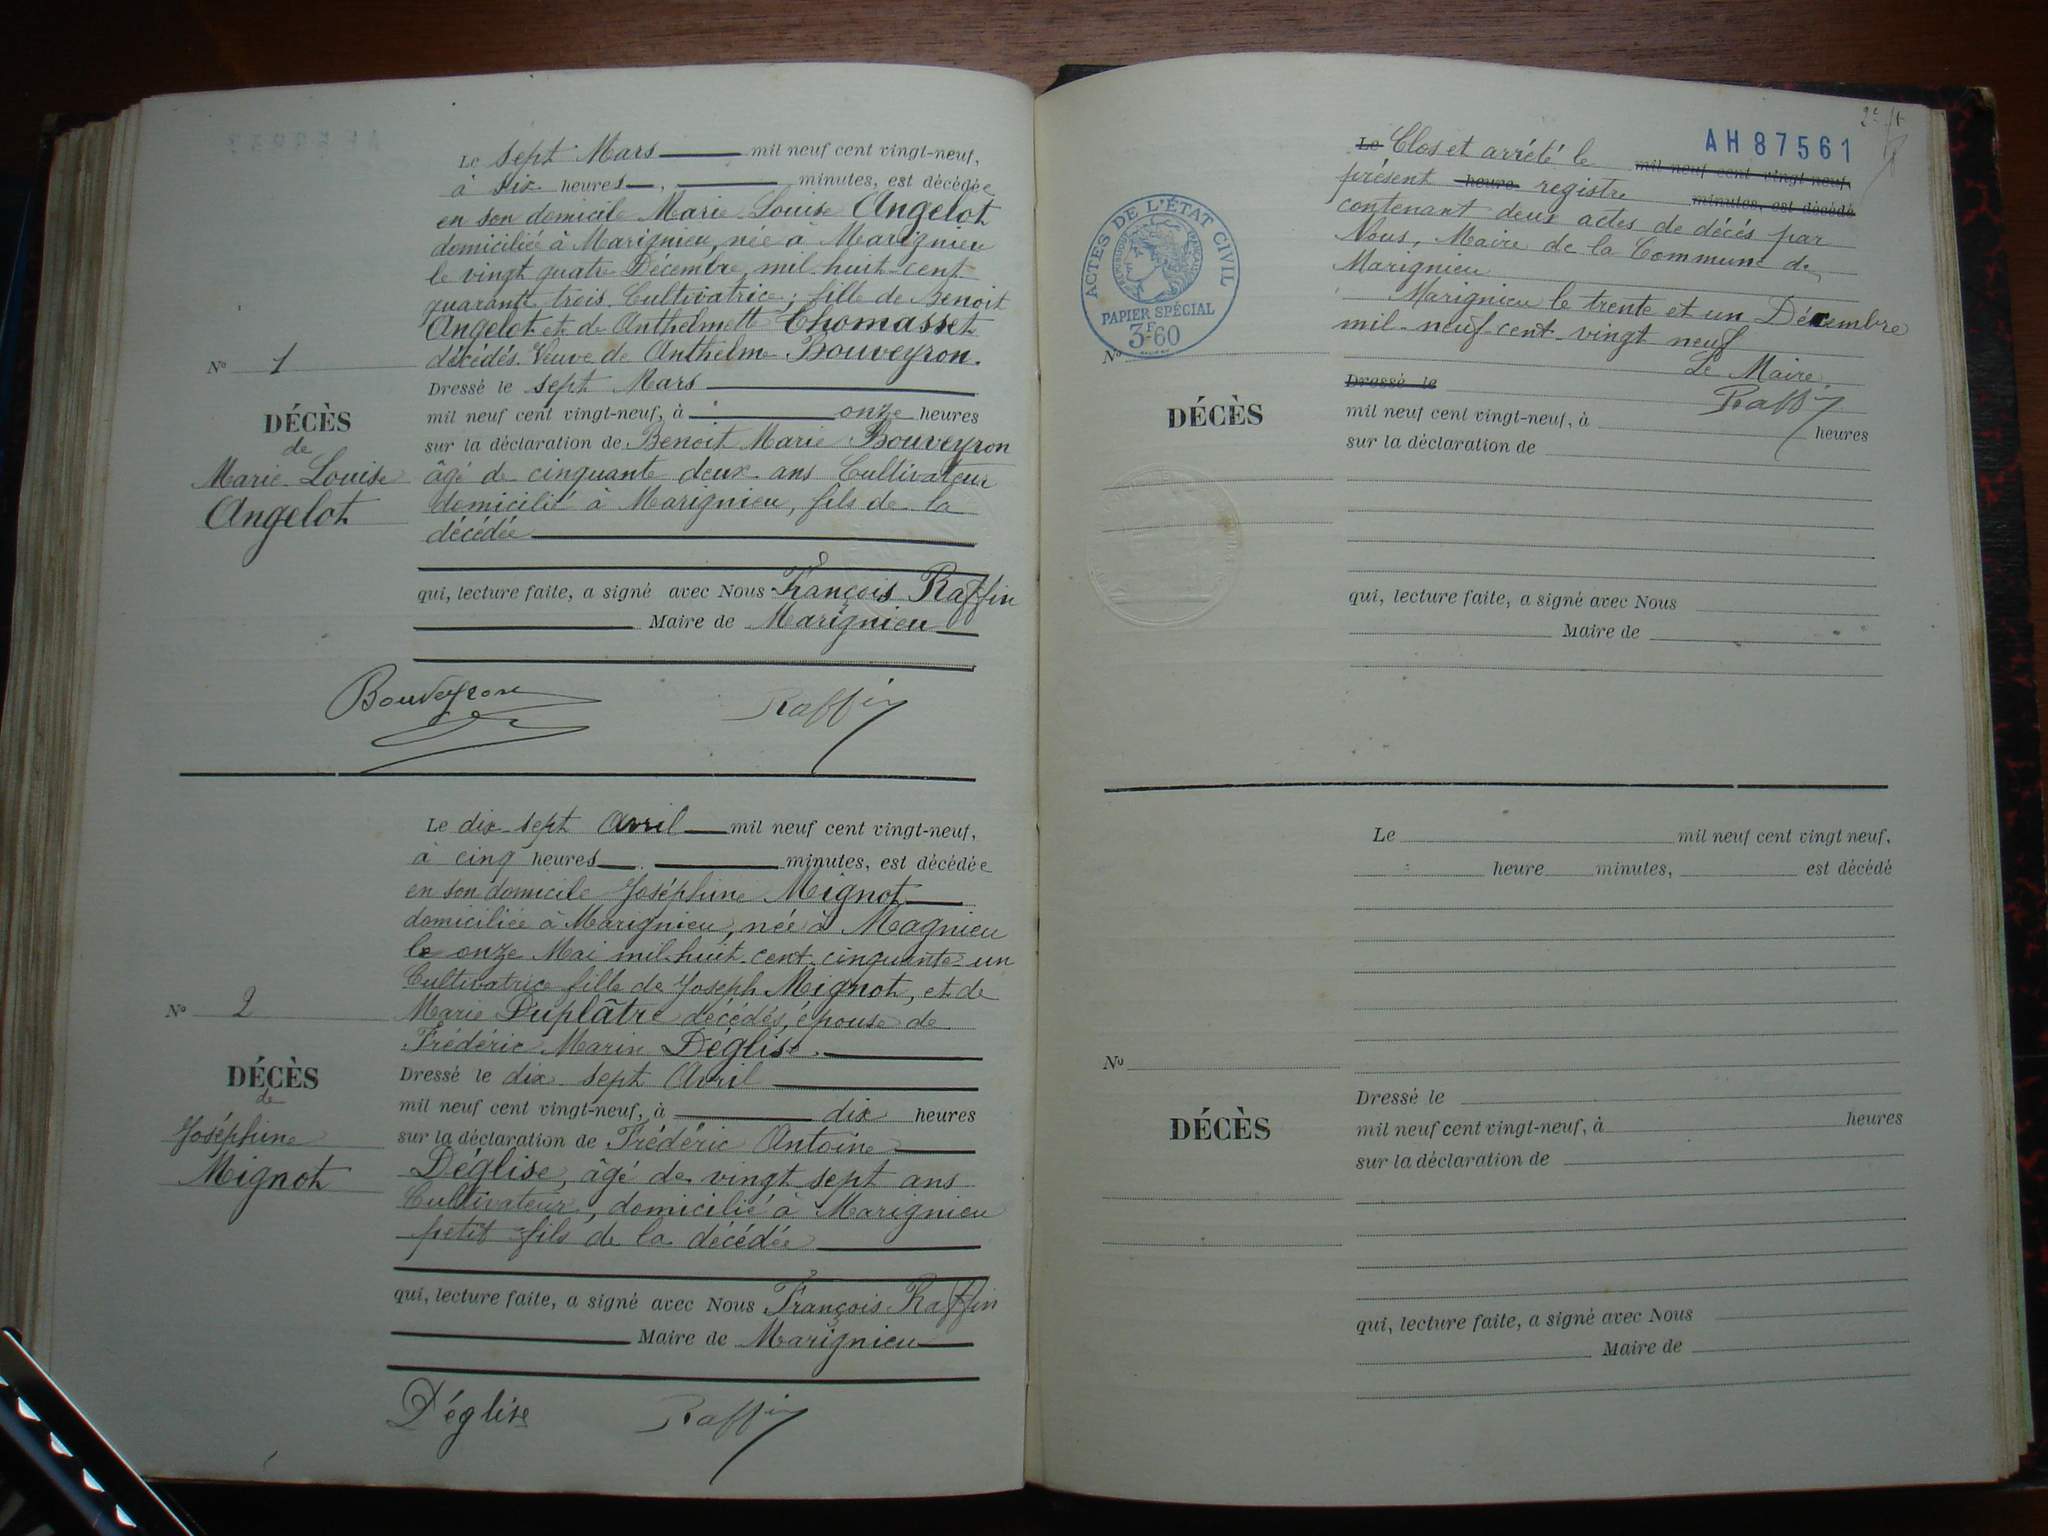 Le sept Mars mil neuf cent vingt-neuf,
à dix heures, minutes, est décédée
en son domicile Marie Louise Angelot
domiciliée à Marignieu, née à Marignieu
le vingt quatre Décembre, mil huit cent
quarante trois Cultivatrice; fille de Benoit
Angelot et de Anthelmette Chomasset
décédés. Veuve de Anthelme Bouveyron.
No 1
Dressé le sept Mars
mil neuf cent vingt-neuf, à onze heures
DÉCÈS
de
Marie Louise
Angelot
sur la déclaration de Benoit Marie Bouveyron
âgé de cinquante deux ans Cultivateur
domicilié à Marignieu, fils de la
décédée
qui, lecture faite, a signé avec Nous François Raffin
Maire de Marignieu
Bouveyron Raffin
Le dix sept Avril mil neuf cent vingt-neuf,
à cinq heures minutes, est décédée
en son domicile Joséphine Mignot
domiciliée à Marignieu, née à Magnieu
le onze Mai mil huit cent cinquante un
Cultivatrice fille de Joseph Mignot, et de
Marie Duplâtre décédés, épouse de
Frédéric Marin Déglise.
No 2
Dressé le dix sept Avril
mil neuf cent vingt-neuf, à dix heures
DÉCÈS
de
Joséphine
Mignot
sur la déclaration de Frédéric Antoine
Déglise, âgé de vingt sept ans
Cultivateur, domicilié à Marignieu
petit-fils de la décédée
qui, lecture faite, a signé avec Nous François Raffin
Maire de Marignieu
Déglise Raffin
AH 87561
Le Clos et arrêté le mil neuf cent vingt-neuf,
présent heure registre minutes, est décédé
contenant deux actes de décés par
Nous, Maire de la Commune de
Marignieu
Marignieu le trente et un Décembre
mil-neuf-cent-vingt neuf
Le Maire,
Raffin
ACTES DE L'ÉTAT CIVIL
RÉPUBLIQUE FRANÇAISE
PAPIER SPÉCIAL
3F60
No
Dressé le
mil neuf cent vingt-neuf, à heures
DÉCÈS
sur la déclaration de
qui, lecture faite, a signé avec Nous
Maire de
Le mil neuf cent vingt neuf,
heure minutes, est décédé
No
Dressé le
mil neuf cent vingt-neuf, à heures
DÉCÈS
sur la déclaration de
qui, lecture faite, a signé avec Nous
Maire de